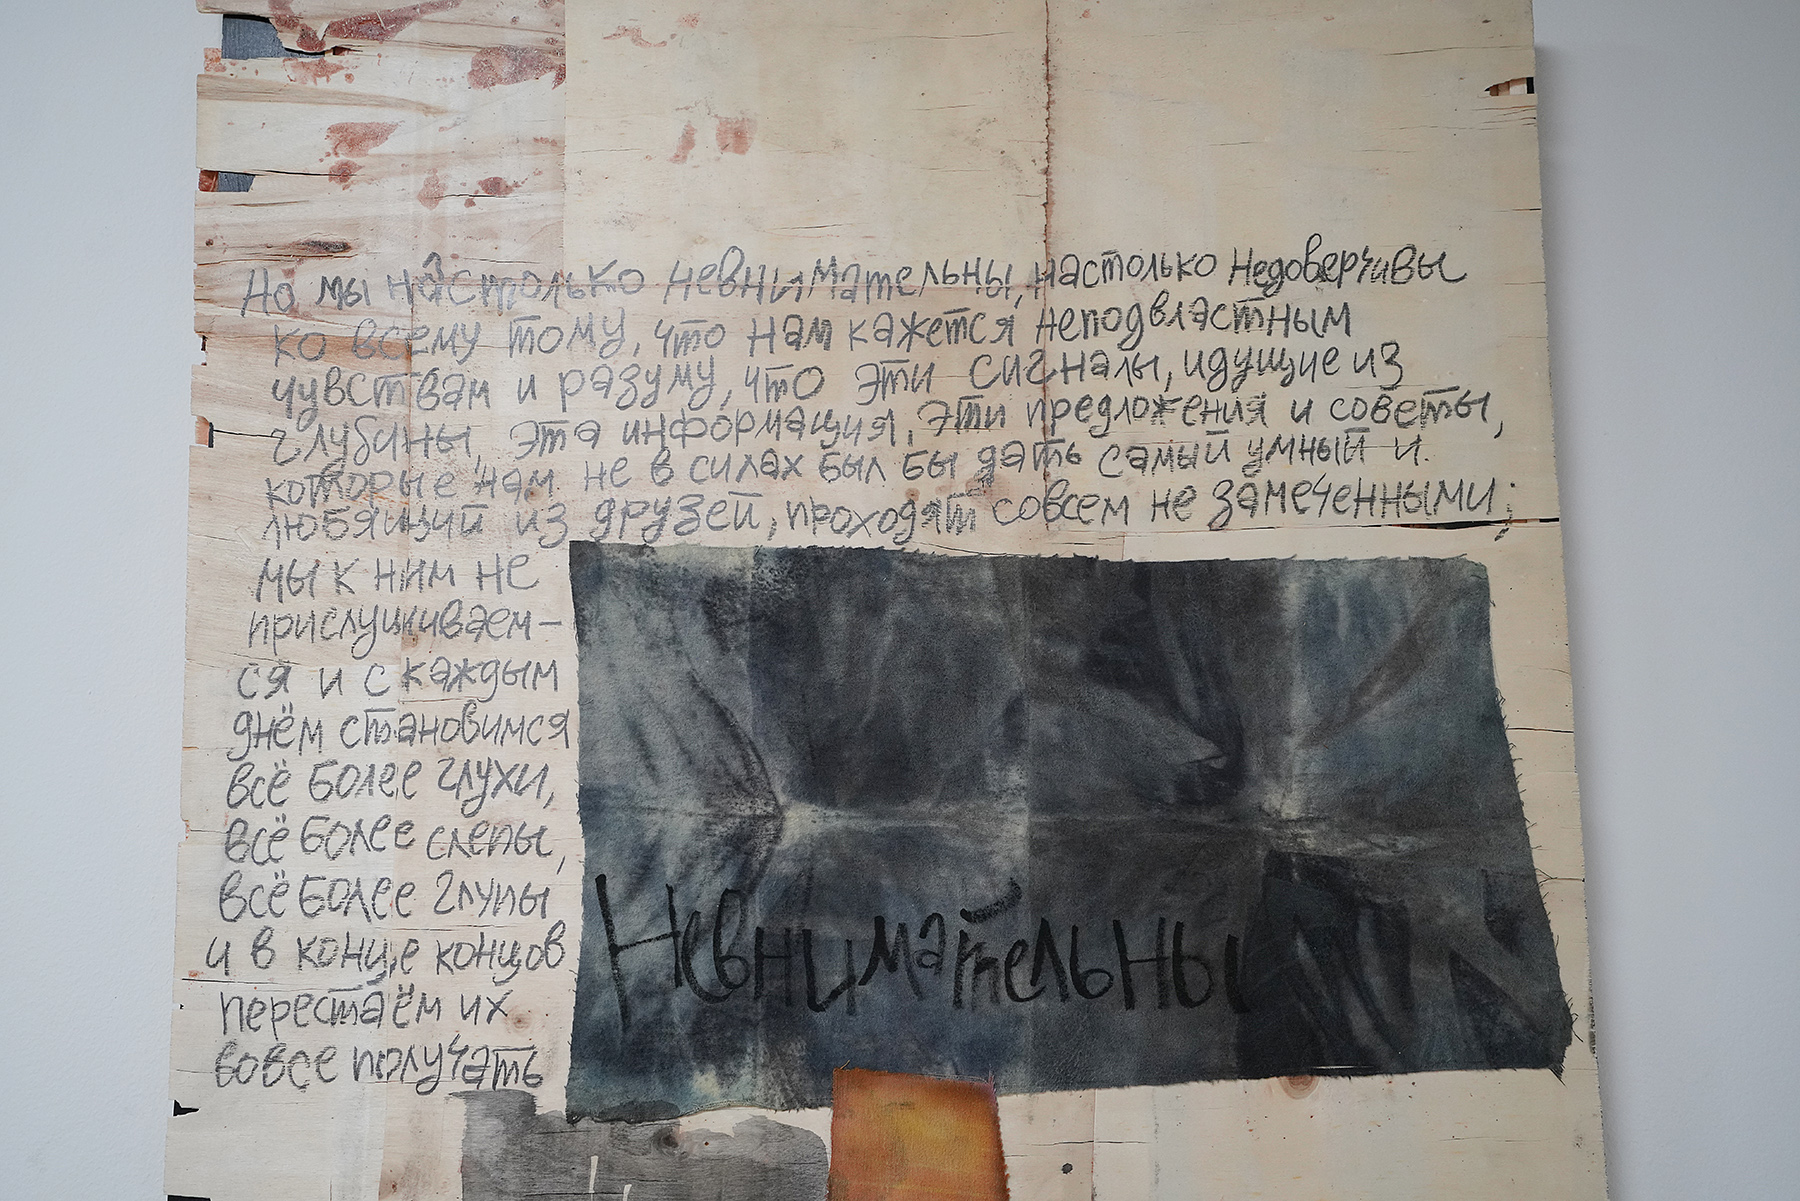 Но мы настолько невнимательны, настолько недоверчивы
ко всему тому, что нам кажется неподвластным
чувствам и разуму, что эти сигналы, идущие из
глубины, эта информация, эти предложения и советы,
которые нам не в силах был бы дать самый умный и
любящий из друзей, проходят совсем не замеченными;
мы к ним не
прислушиваем-
ся и с каждым
днём становимся
всё более глухи,
всё более слепы,
всё более глупы
и в конце концов
перестаём их
вовсе получать
Невнимательны